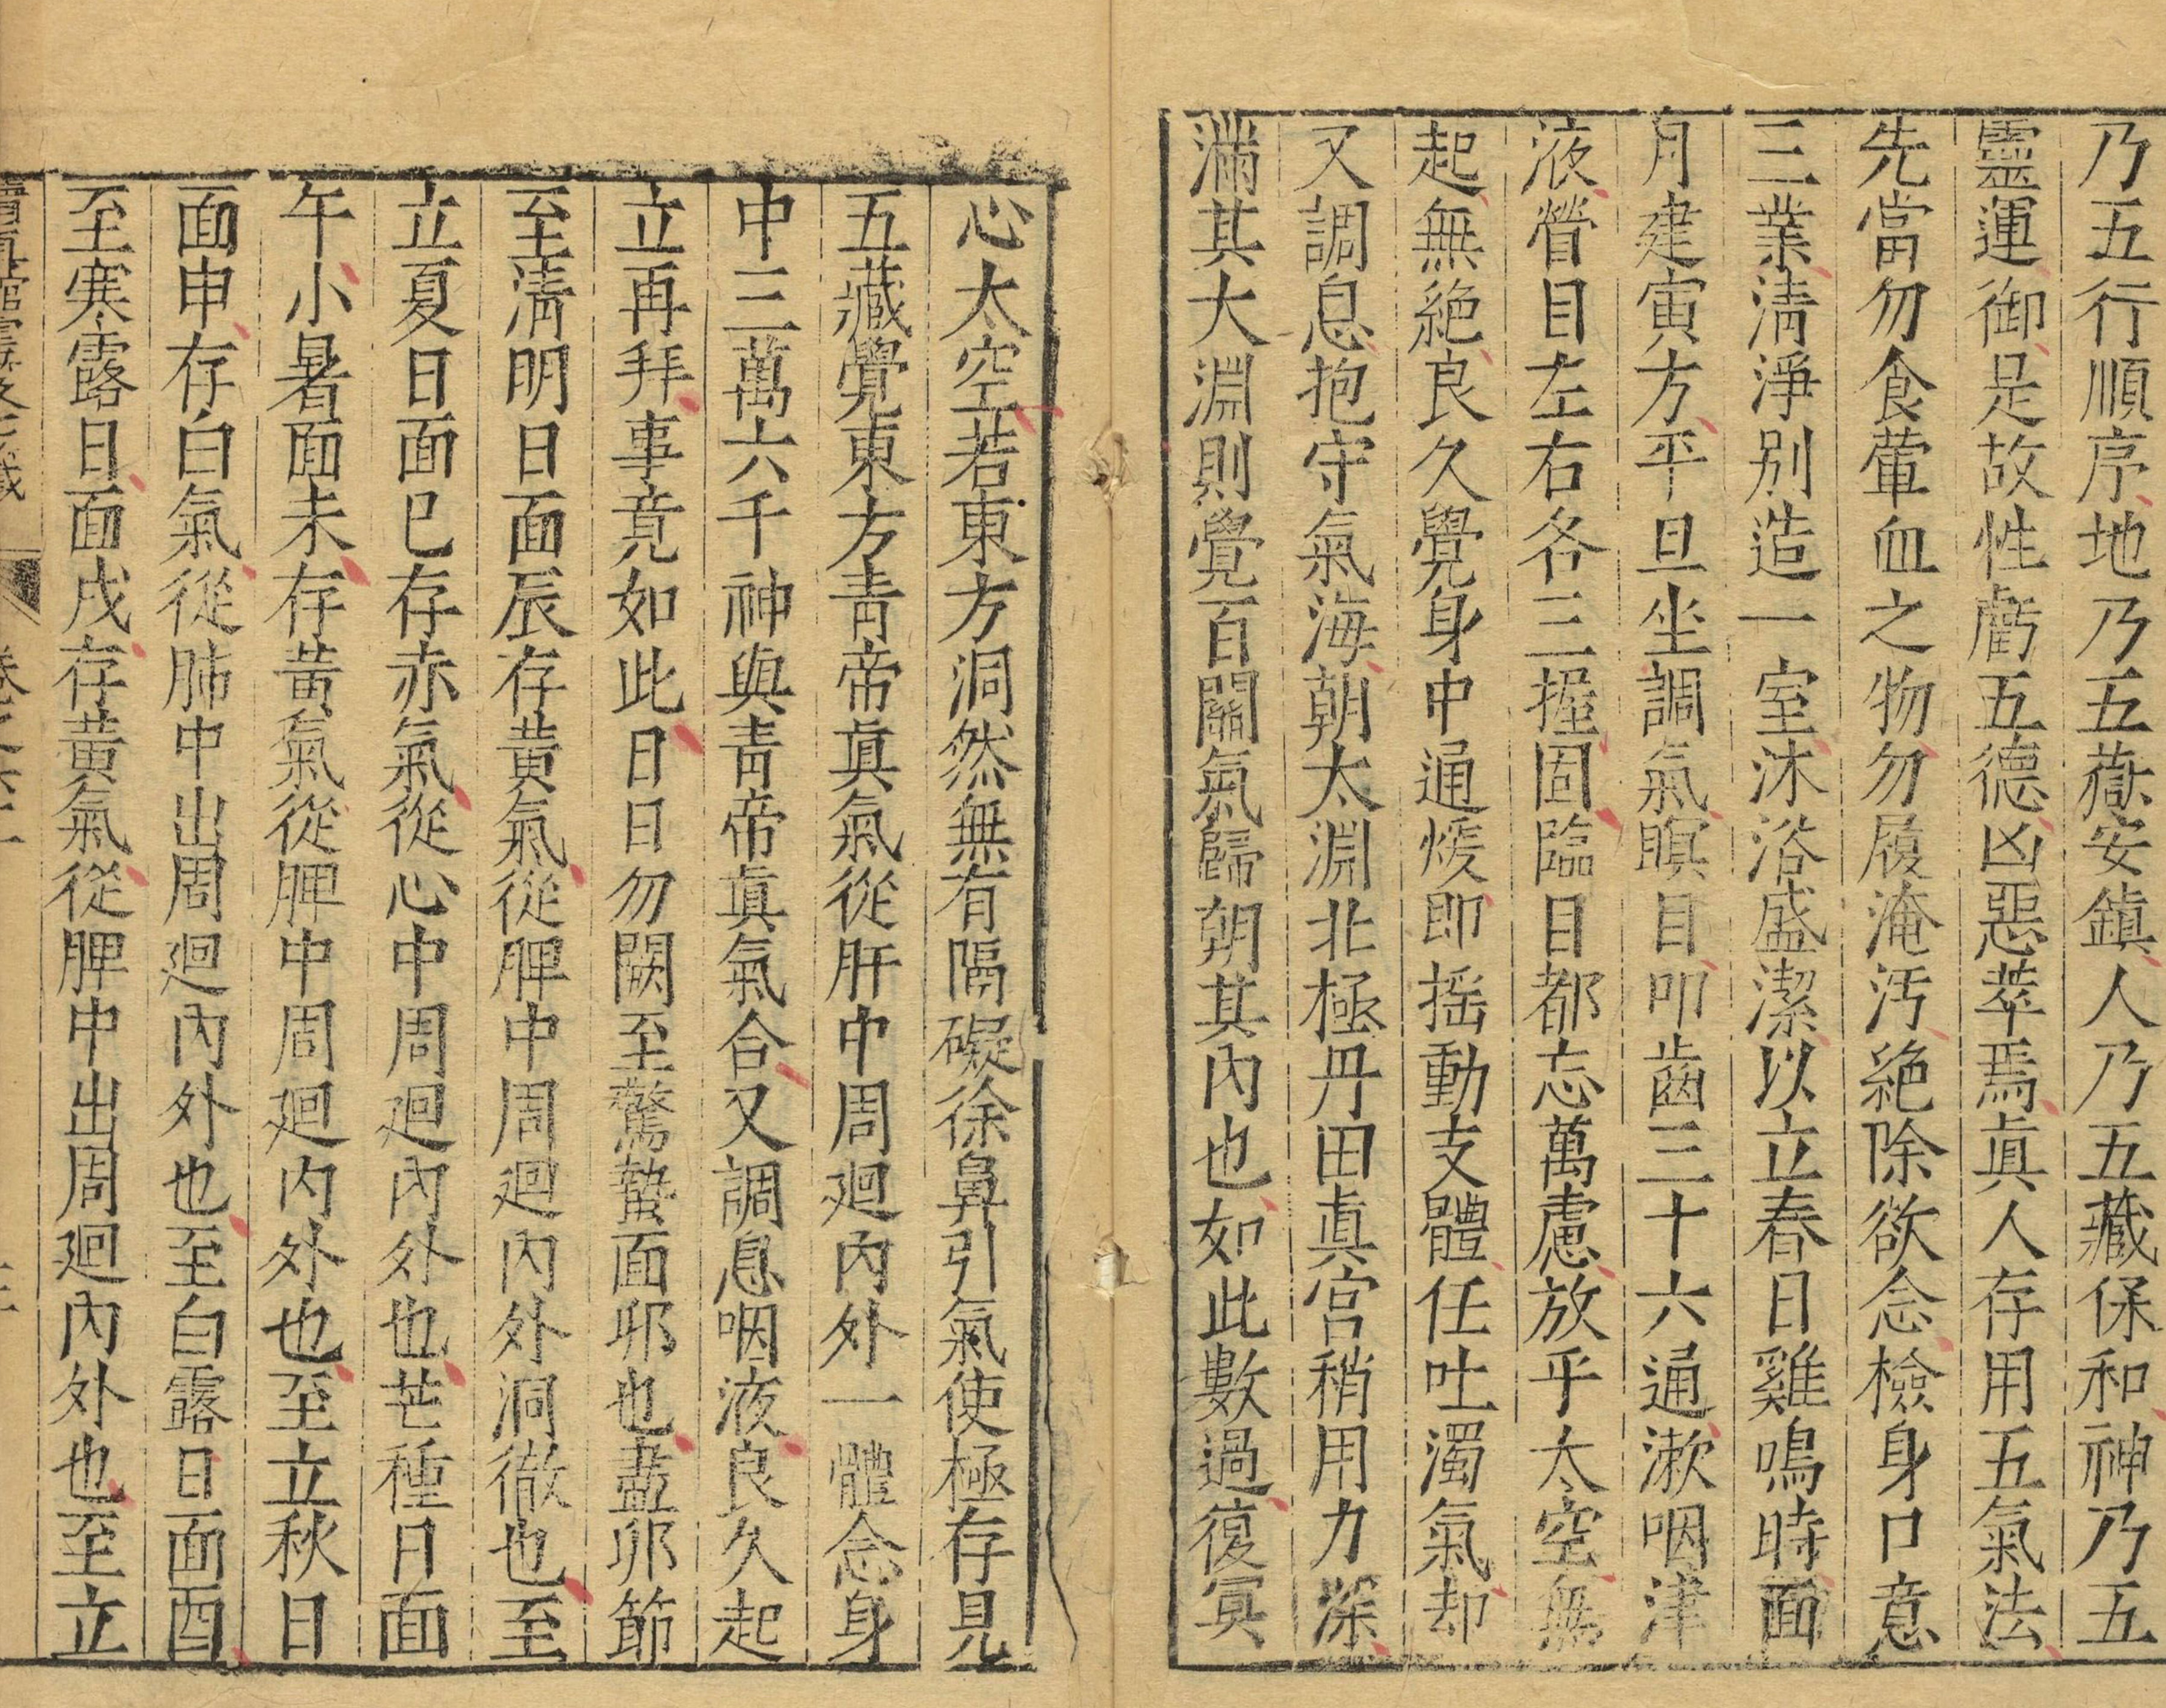 乃五行順序地乃五嶽安鎮人乃五藏保和神乃五
靈運御是故性虧五德凶惡萃焉眞人存用五氣法
先當勿食葷血之物勿履淹汚絶除欲念檢身口意
三業清淨别造一室沐浴盛潔以立春日雞鳴時面
月建寅方平旦坐調氣瞑目叩齒三十六通漱咽津
液營目左右各三握固臨目都忘萬慮放乎太空無
起無絶良久覺身中通煖即揺動支體任吐濁氣却
又調息抱守氣海朝太淵北極丹田眞宫稍用力深
滿其大淵則覺百關氣歸朝其內也如此數過復冥
心太空若東方洞然無有隔礙徐鼻引氣使極存見
五藏覺東方青帝眞氣從肝中周廻內外一體念身
中三萬六千神與青帝眞氣合又調息咽液良久起
立再拜事竟如此日日勿闕至驚蟄面卯也盡卯節
至淸明日面辰存黃氣從脾中周廻內外洞徹也至
立夏日面巳存赤氣從心中周廻內外也芒種日面
午小暑面未存黃氣從脾中周廻內外也至立秋日
面申存白氣從肺中出周廻內外也至白露日面酉
至寒露日面戌存黃氣從脾中出周廻內外也至立